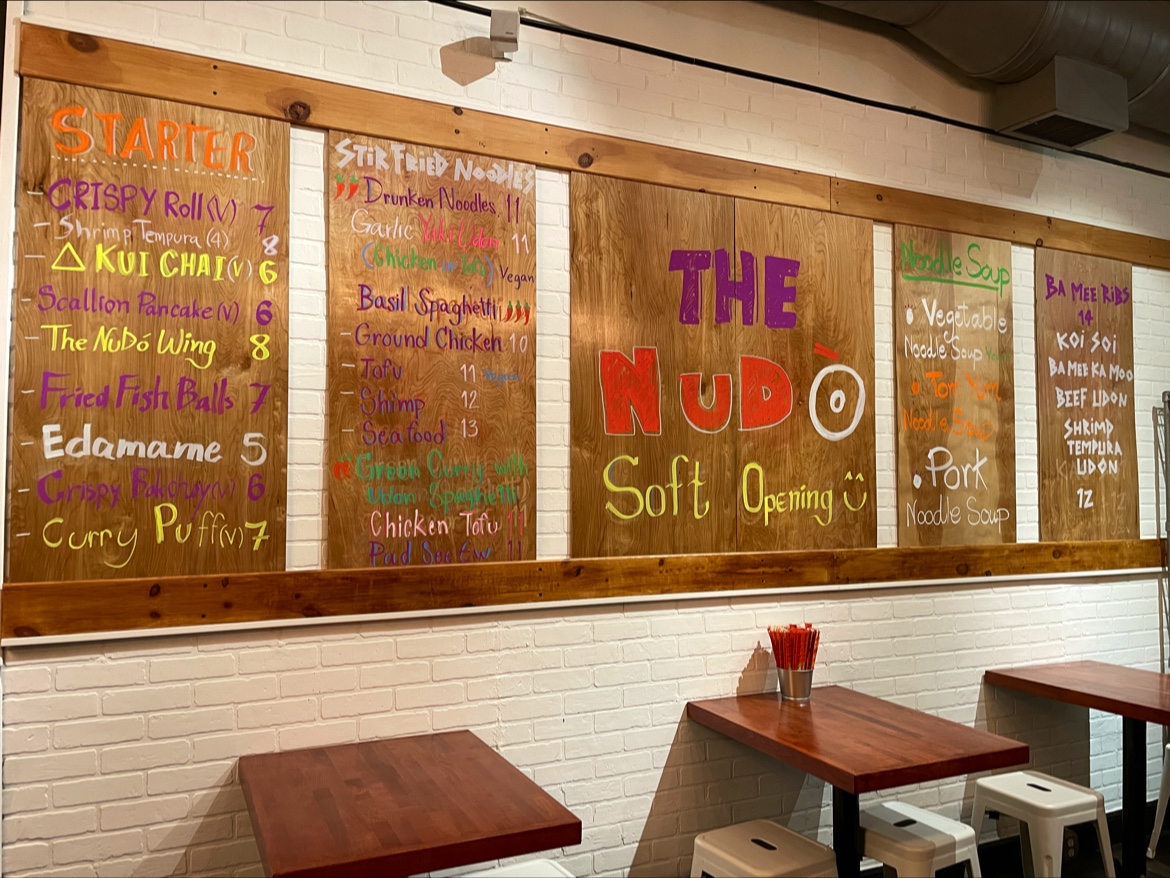 STARTER
- CRISPY Roll (V) 7
- Shrimp Tempura (4) 8
- △ KUI CHAI (V) 6
- Scallion Pancake (V) 6
- The NuDó Wing 8
- Fried Fish Balls 7
- Edamame 5
- Crispy (V) 6
- Curry Puff (V) 7
STIR FRIED NOODLES
Drunken Noodles 11
Garlic Yaki Udon 11
(Chicken or Tofu) Vegan
Basil Spaghetti
- Ground Chicken 10
- Tofu 11 Vegan
- Shimp 12
- Seafood 13
Green Curry with
Udon Spaghetti
Chicken Tofu 11
Pad See Ew 11
THE
NUDÒ
Soft Opening
Noodle Soup
• Vegetable
Noodle Soup
• Tom Yum
Noodle Soup
• Pork
Noodle Soup
BA MEE RIBS
14
KOI SOI
BA MEE KA MOO
BEEF UDON
SHRIMP
TEMPURA
UDON
12